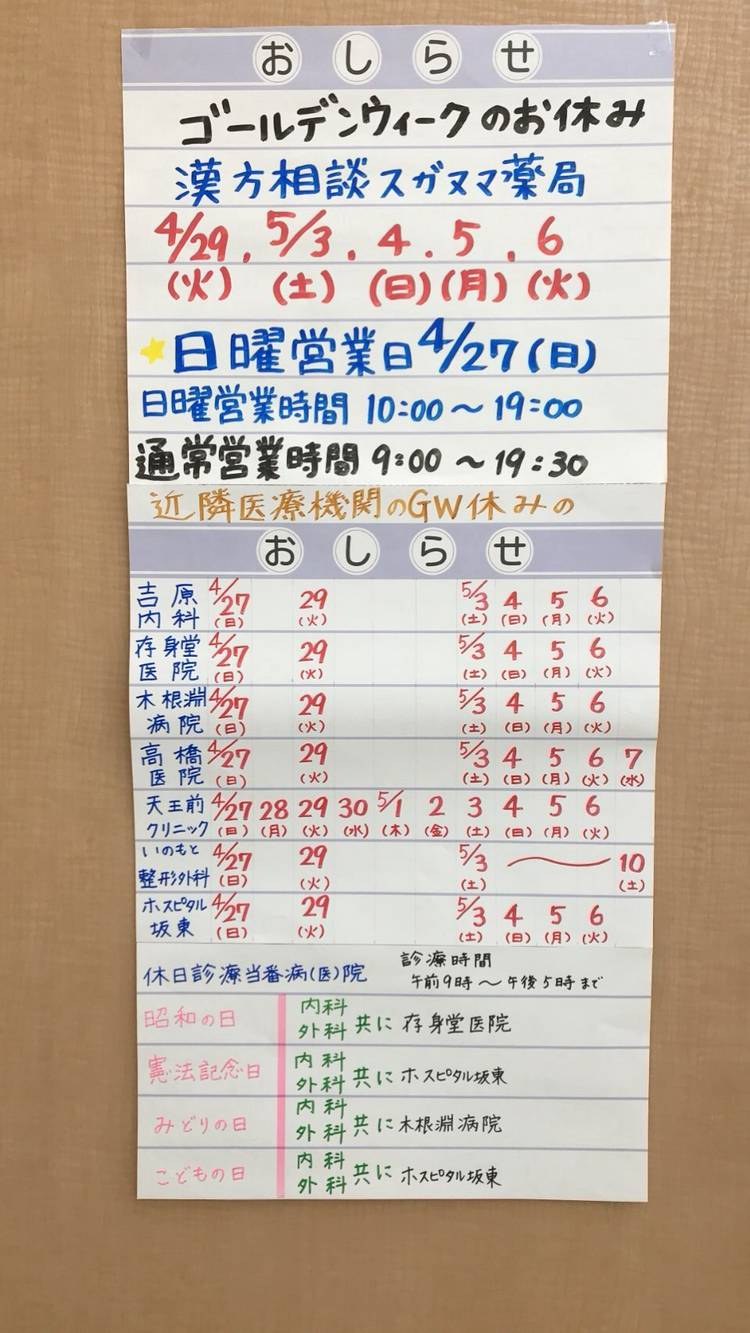 おしらせ
ゴールデンウィークのお休み
漢方相談スガヌマ薬局
4/29. 5/3. 4. 5. 6
(火) (土) (日) (月) (火)
日曜営業日 4/27(日)
日曜営業時間 10:00～19:00
通常営業時間 9:00～19:30
近隣医療機関のGW休みの
おしらせ
吉原 4/27 29 5/3 4 5 6
内科 (日) (火) (土) (日) (月) (火)
存身堂 4/27 29 5/3 4 5 6
医院 (日) (火) (土) (日) (月) (火)
木根淵 4/27 29 5/3 4 5 6
病院 (日) (火) (土) (日) (月) (火)
高橋 4/27 29 5/3 4 5 6 7
医院 (日) (火) (土) (日) (月) (火) (水)
天王前 4/27 28 29 30 5/1 2 3 4 5 6
クリニック (日) (月) (火) (水) (木) (金) (土) (日) (月) (火)
いのもと 4/27 29 5/3 〜 10
整形外科 (日) (火) (土) (土)
ホスピタル 4/27 29 5/3 4 5 6
坂東 (日) (火) (土) (日) (月) (火)
休日診療当番病(医)院 診療時間
午前9時～午後5時まで
昭和の日 内科 外科 共に 存身堂医院
憲法記念日 内科 外科 共に ホスピタル坂東
みどりの日 内科 外科 共に 木根淵病院
こどもの日 内科 外科 共に ホスピタル坂東